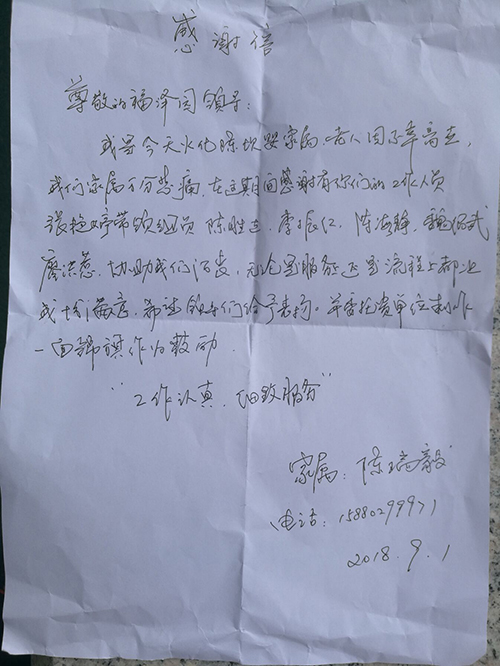 感谢信
尊敬的福泽园领导：
我是今天火化陈坎婴家属，老人因年高去，
我们家属万分悲痛，在这期间感谢有你们的工作人员
张艳婷带领组员 陈胜、李振红、陈海锋、魏
廖洪慈，协助我们治丧，无论是服务还是流程上都让
我十分满意，希望领导们给予表扬。并委托贵单位制作
一面锦旗作为鼓励．
"工作认真、细致服务"
家属：陈瑞毅
电话：15880299971
2018.9.1